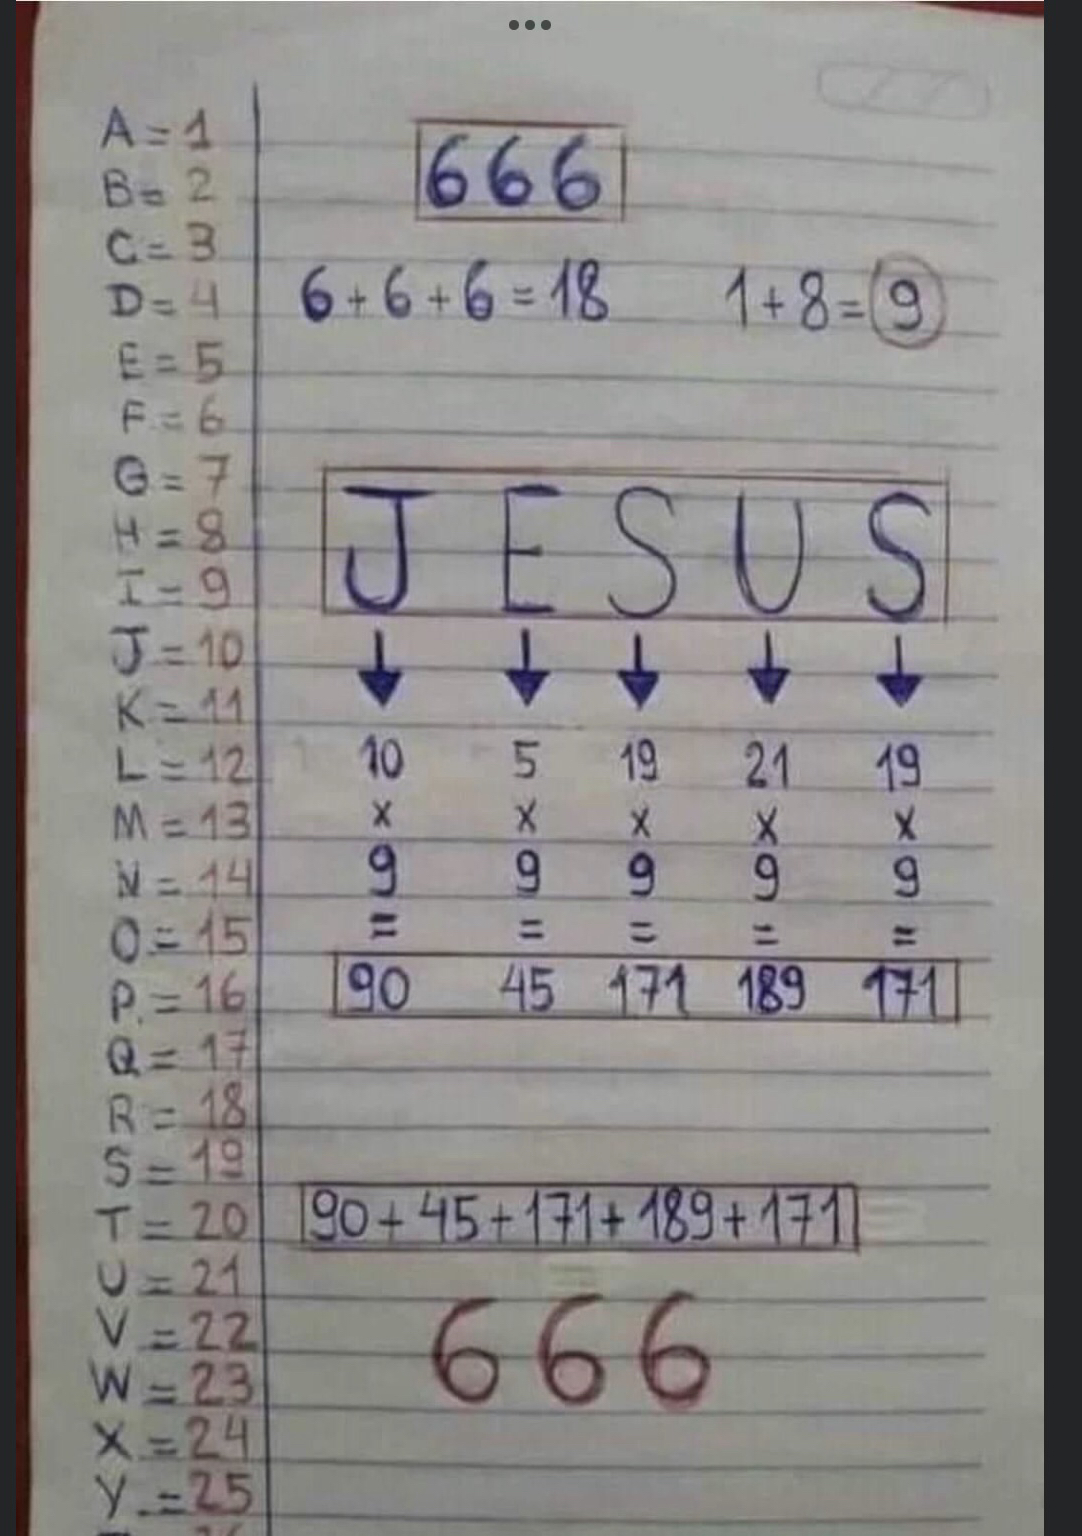 A = 1
B = 2
C = 3
D = 4
E = 5
F = 6
G = 7
H = 8
I = 9
J = 10
K = 11
L = 12
M = 13
N = 14
O = 15
P = 16
Q = 17
R = 18
S = 19
T = 20
U = 21
V = 22
W = 23
X = 24
Y = 25
666
6 + 6 + 6 = 18 1 + 8 = 9
JESUS
10 5 19 21 19
x x x x x
9 9 9 9 9
= = = = =
90 45 171 189 171
90 + 45 + 171 + 189 + 171
=
666